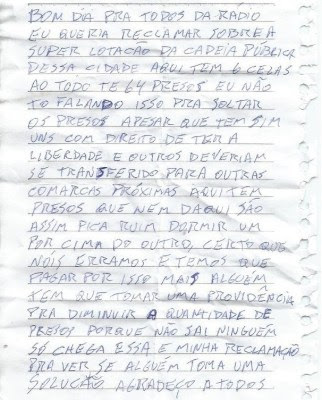 BOM DIA PRA TODOS DA RÁDIO
EU QUERIA RECLAMAR SOBRE A
SUPER LOTAÇÃO DA CADEIA PÚBLICA
DESSA CIDADE AQUI TEM 6 CELAS
AO TODO TE 64 PRESOS EU NÃO
TO FALANDO ISSO PRA SOLTAR
OS PRESOS APESAR QUE TEM SIM
UNS COM DIREITO DE TER A
LIBERDADE E OUTROS DEVERIAM
SE TRANSFERIDO PARA OUTRAS
COMARCAS PRÓXIMAS AQUI TEM
PRESOS QUE NEM DAQUI SÃO
ASSIM FICA RUIM DORMIR UM
POR CIMA DO OUTRO, CERTO QUE
NOIS ERRAMOS E TEMOS QUE
PAGAR POR ISSO MAIS ALGUÉM
TEM QUE TOMAR UMA PROVIDÊNCIA
PRA DIMINUIR A QUANTIDADE DE
PRESOS PORQUE NÃO SAI NINGUÉM
SÓ CHEGA ESSA E MINHA RECLAMAÇÃO
PRA VER SE ALGUÉM TOMA UMA
SOLUCÃO AGRADEÇO A TODOS